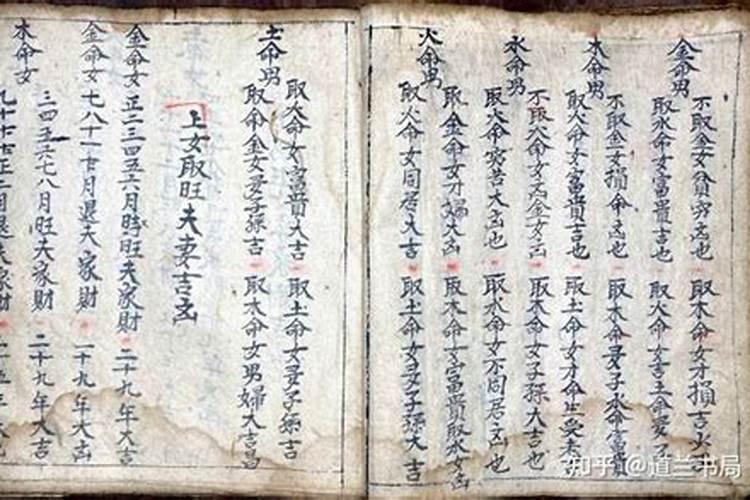 金命男
不取金女貧穷凶也 取木命女才損吉
取水命女富貴吉也 取火命女吉土命
木命男
不取金女損命凶也 取木命
取火命女富貴吉也 取土命女才命生受
水命男
不取火命女凶金女凶 取木命女子孫大吉也
取火命穷苦大凶也 取水命女不同居凶也
火命男
取金命女才婦大凶 取木命女富貴取水女凶
取火命女同居大吉 取土命女多子孫大吉
土命男
取火命女富貴大吉 取土命女多子孫吉
取命金女多子孫吉 取木命女男婦大吉昌
上女取旺夫妻吉凶
金命女 正二三四五六月時旺夫家財 二十九年大吉
金命女 七八十一十月退夫家財 一十九年大凶
木命女 三四五六七八月旺夫家財 二十九年大吉
九十
知乎 @道兰书局